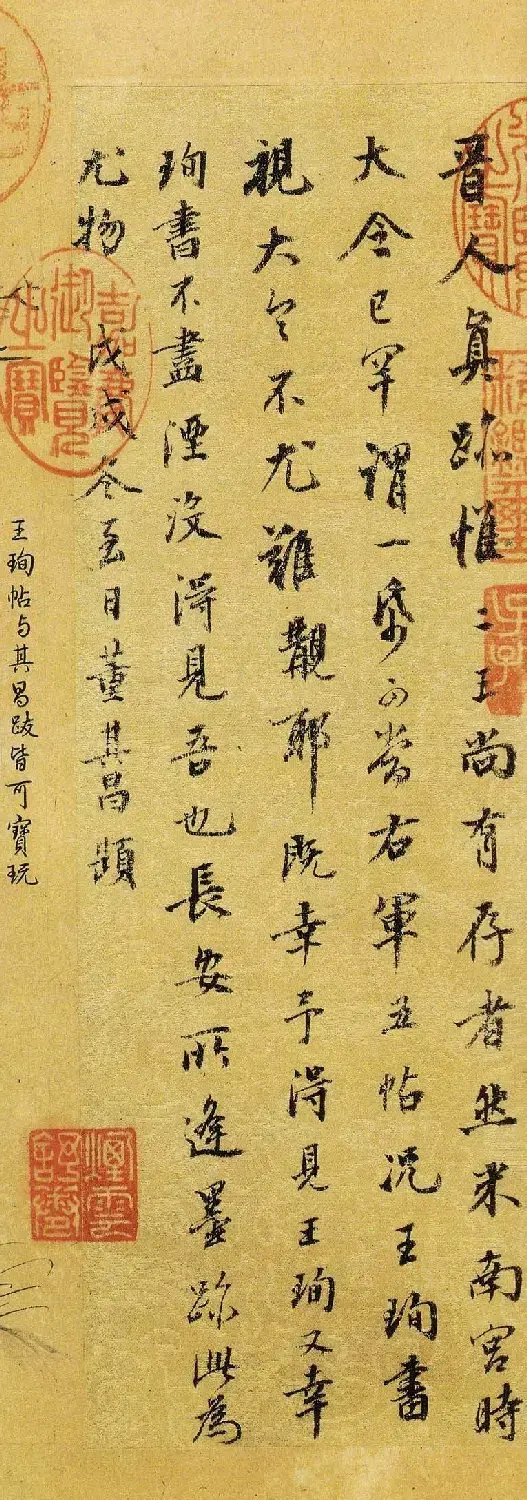 晋人真跡惟二王尚有存者然米南宮時
大令已罕謂一帋可當右軍五帖況王珣書
視大令不尤難覯耶既幸予得見王珣又幸
珣書不盡湮没得見吾也長安所逢墨跡此為
尤物 戊戌冬至日董其昌題
王珣帖与其昌跋皆可寶玩
嘉慶御覽之寶